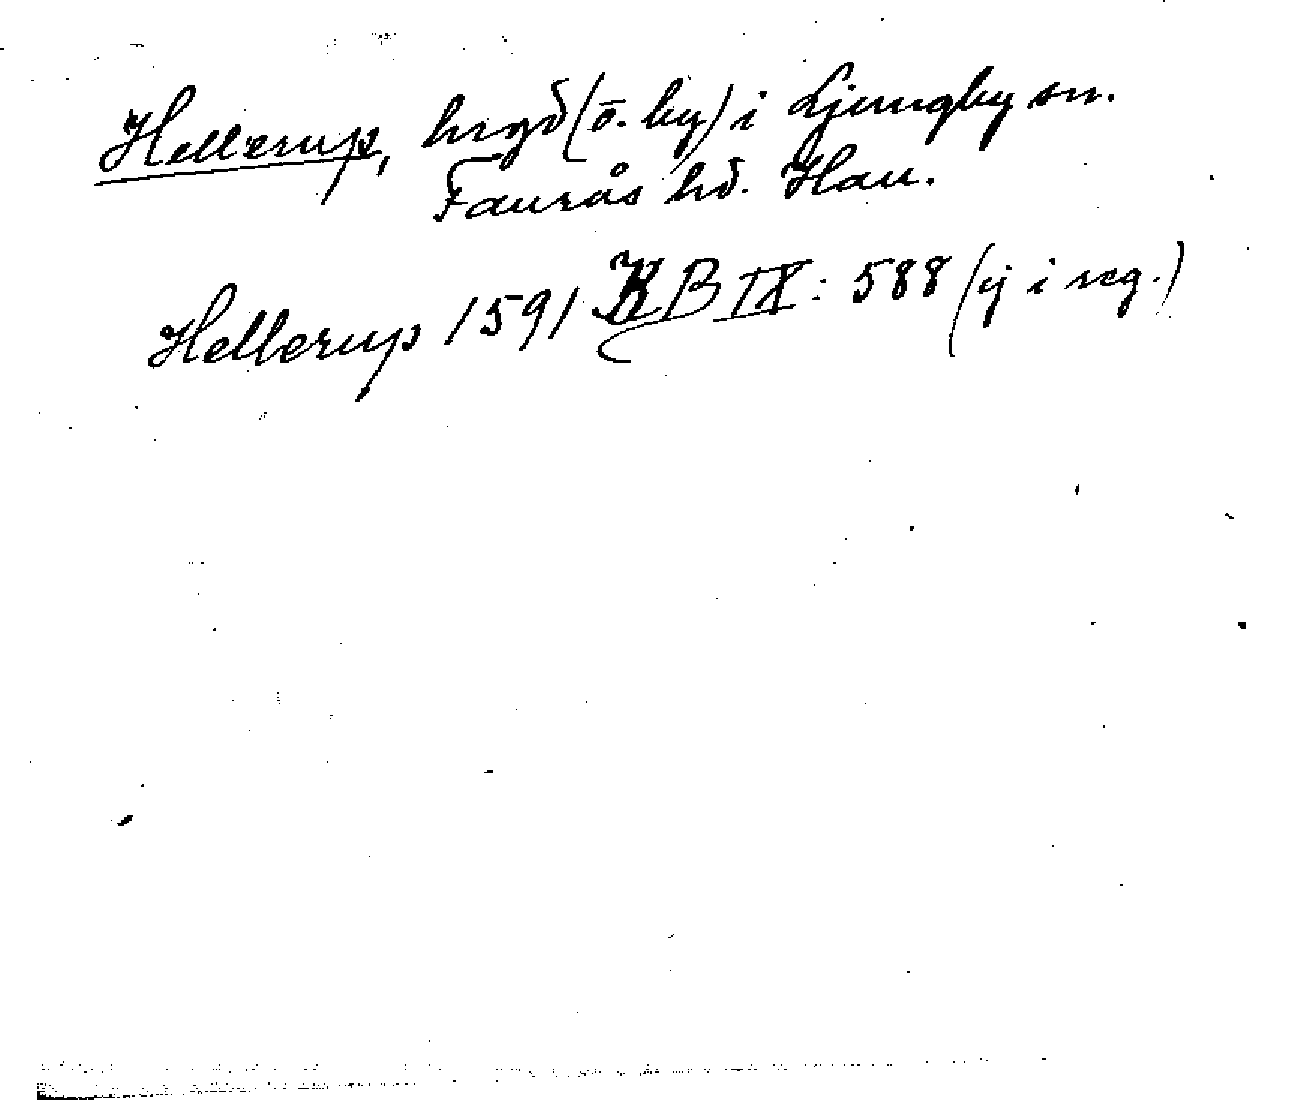 Hellerup, hrgd (ö. by) i Ljungby sn.
Faurås hd. Hall.
Hellerup 1591 KB IX: 588 (ej i reg.)